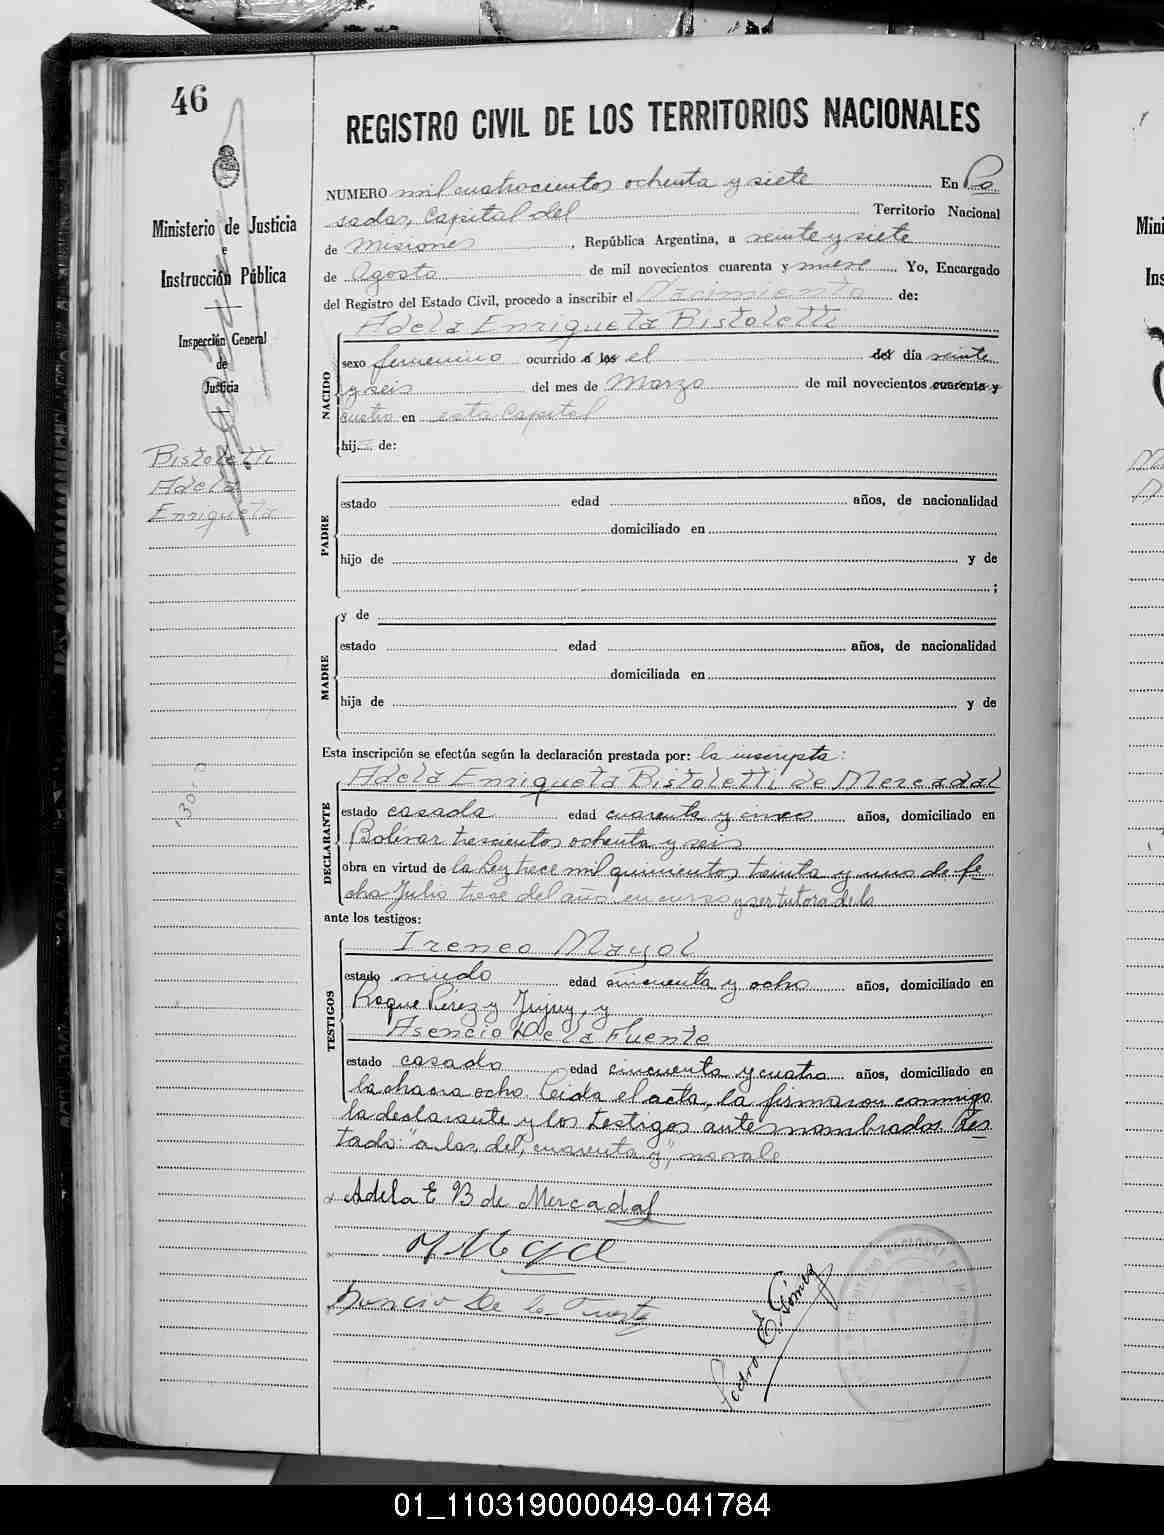 46
REGISTRO CIVIL DE LOS TERRITORIOS NACIONALES
Ministerio de Justicia
e
Instrucción Pública
Inspección General
de
Justicia
Bistoletti
Adela
Enriqueta
NUMERO mil cuatrocientos ochenta y siete En Po
sadas, Capital del Territorio Nacional
de Misiones, República Argentina, a veinte y siete
de Agosto de mil novecientos cuarenta y nueve. Yo, Encargado
del Registro del Estado Civil, procedo a inscribir el Nacimiento de:
Adela Enriqueta Bistoletti
NACIDO
sexo femenino ocurrido á los el del día veinte
y seis del mes de Marzo de mil novecientos cuarenta y
cuatro en esta Capital
hij de:
PADRE
estado edad años, de nacionalidad
domiciliado en
hijo de y de
;
MADRE
y de
estado edad años, de nacionalidad
domiciliada en
hija de y de
Esta inscripción se efectúa según la declaración prestada por: la inscripta:
Adela Enriqueta Bistoletti de Mercadal
DECLARANTE
estado casada edad cuarenta y cinco años, domiciliado en
Bolivar trescientos ochenta y seis
obra en virtud de la Ley trece mil quinientos treinta y uno de fe
cha Julio trece del año en curso y ser tutora de la
ante los testigos:
TESTIGOS
Ireneo Mayol
estado viudo edad cincuenta y ocho años, domiciliado en
Roque Pérez y Jujuy, y
Asencio De la Fuente
estado casado edad cincuenta y cuatro años, domiciliado en
la chacra ocho. Leida el acta, la firmaron conmigo
la declarante y los testigos antenombrados. Tes
tado: "a los, del, cuarenta y", no vale
Adela E B de Mercadal
Asencio De la Fuente
Pedro E. Gómez
01_110319000049-041784